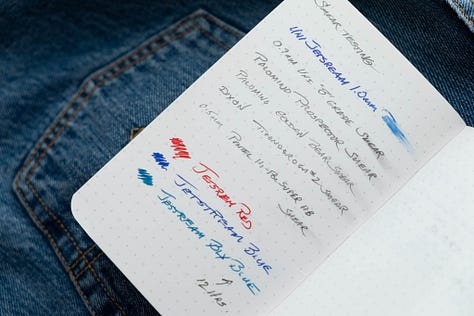 SMEAR TESTING
UNI JETSTREAM 1.0mm
0.7mm UNI GRADE SMEAR
PALOMINO PROSPECTOR SMEAR
PALOMINO GOLDEN BEAR SMEAR
DIXON TICONDEROGA #2 SMEAR
0.5mm PENTEL HI-POLYMER HB
SMEAR
JETSREM RED
JETSTREAM BLUE
JESTREAM BLK BLUE
↑
12 HRS.